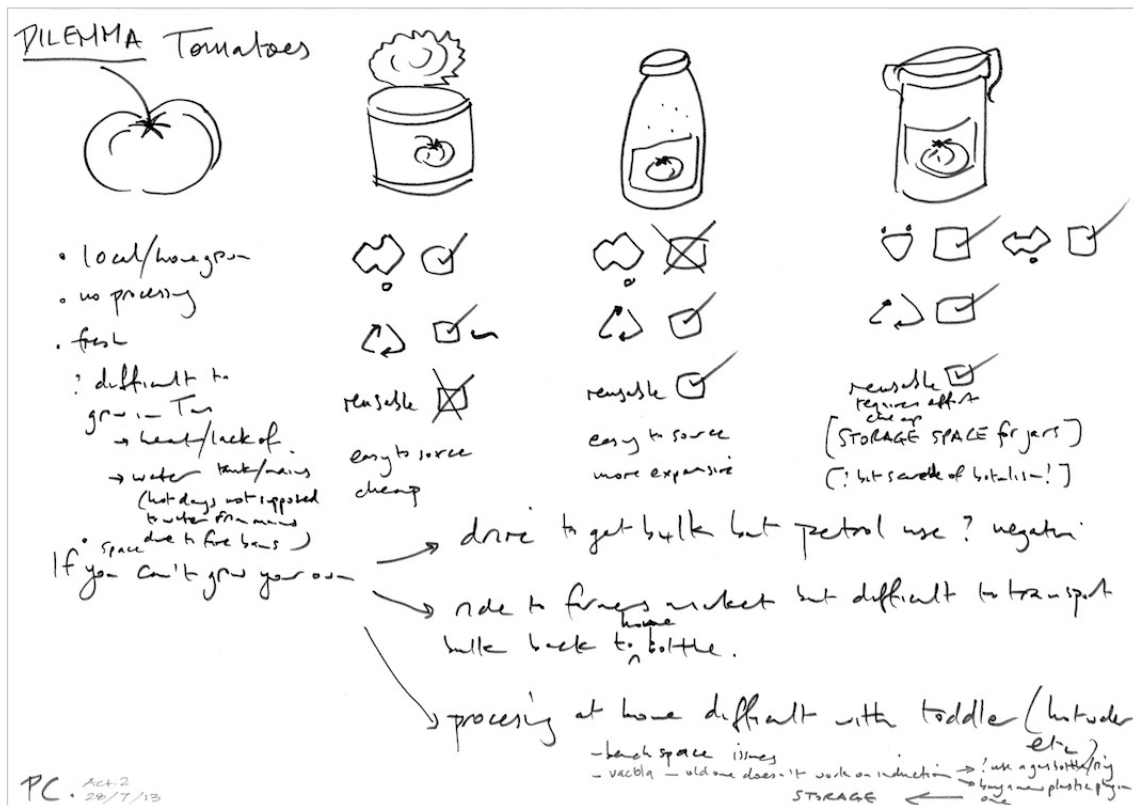 DILEMMA Tomatoes
• local/homegrown
• no processing
• fresh
? difficult to
grow in Tas
→ heat/lack of
→ water tank/mains
(hot days not supposed
to water from mains
due to fire bans)
• space
If you can't grow your own
reusable
easy to source
cheap
reusable
easy to source
more expensive
reusable
requires effort
cheap
[STORAGE SPACE for jars]
(? but scared of botulism!)
drive to get bulk but petrol use? negative
ride to farmers market but difficult to transport
bulk back to home bottle.
processing at home difficult with toddler (hot water
etc)
- bench space issues
- vacola - old one doesn't work on induction → ? use a gas bottle/ring
→ buy a new plastic plug in
one
STORAGE ←
PC. Act. 2
28/7/13